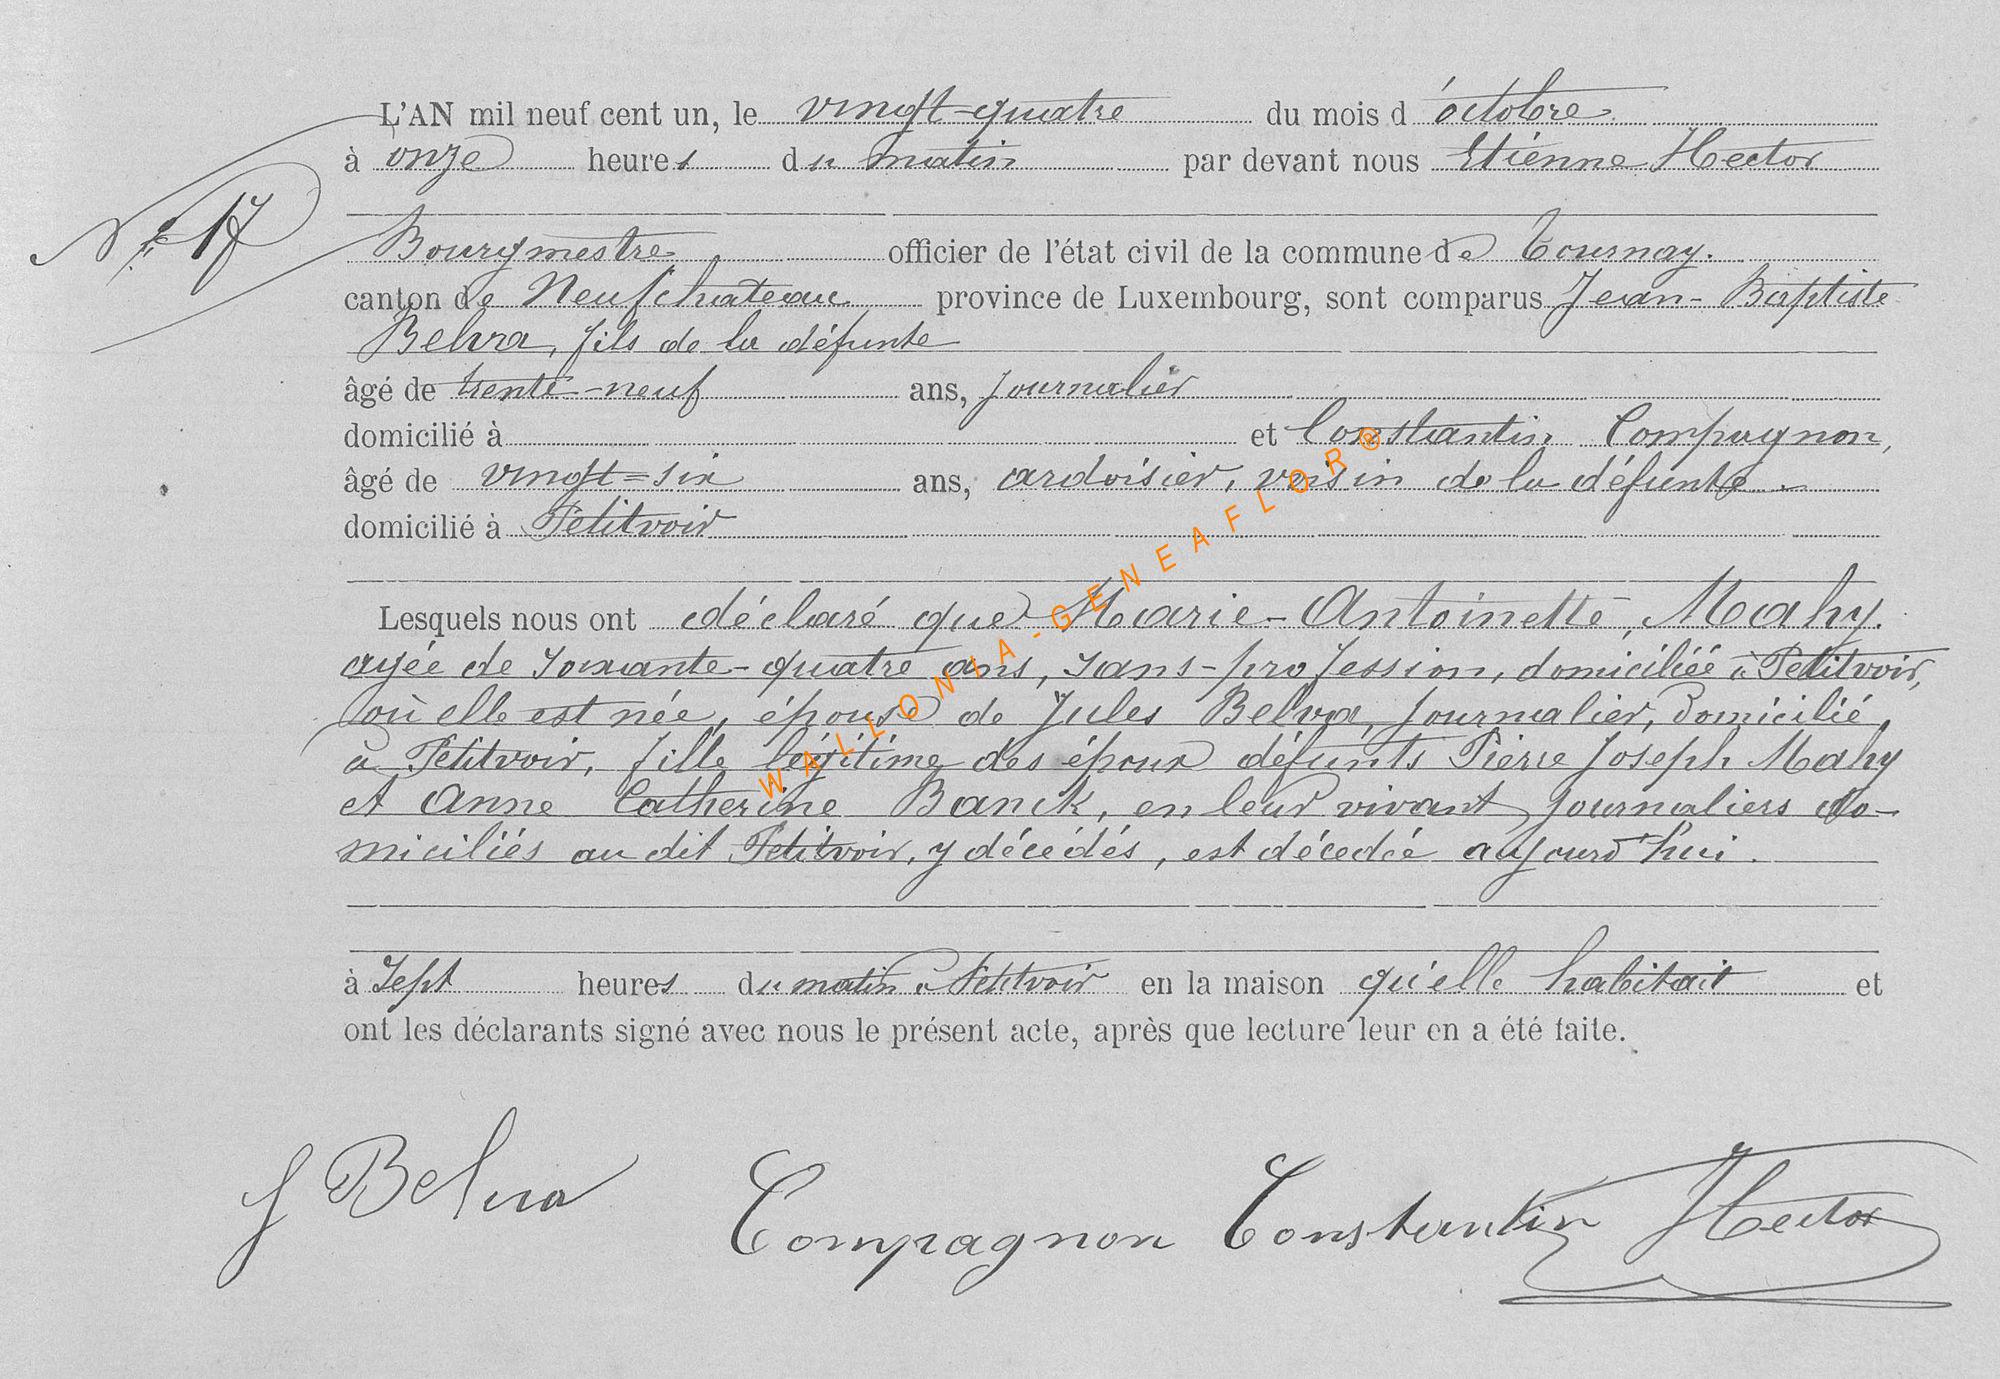 L'AN mil neuf cent un, le vingt-quatre du mois d'octobre
à onze heures du matin par devant nous Etienne Hector
N° 17
Bourgmestre officier de l'état civil de la commune de Tournay.
canton de Neufchateau province de Luxembourg, sont comparus Jean-Baptiste
Belva, fils de la défunte
âgé de trente-neuf ans, journalier
domicilié à et Constantin Compagnon,
âgé de vingt=six ans, ardoisier, voisin de la défunte
domicilié à Petitvoir
Lesquels nous ont déclaré que Marie-Antoinette, Mahy.
agée de soixante-quatre ans, sans-profession, domiciliée à Petitvoir,
où elle est née, épouse de Jules Belva, journalier, domicilié
à Petitvoir, fille légitime des époux défunts Pierre Joseph Mahy
et Anne Catherine Banck, en leur vivant journaliers do-
miciliés au dit Petitvoir, y décédés, est décedée aujourd'hui.
à sept heures du matin à Petitvoir en la maison qu'elle habitait et
ont les déclarants signé avec nous le présent acte, après que lecture leur en a été faite.
J Belva Compagnon Constantin Hector
WALLONIA-GENEAFLOR®